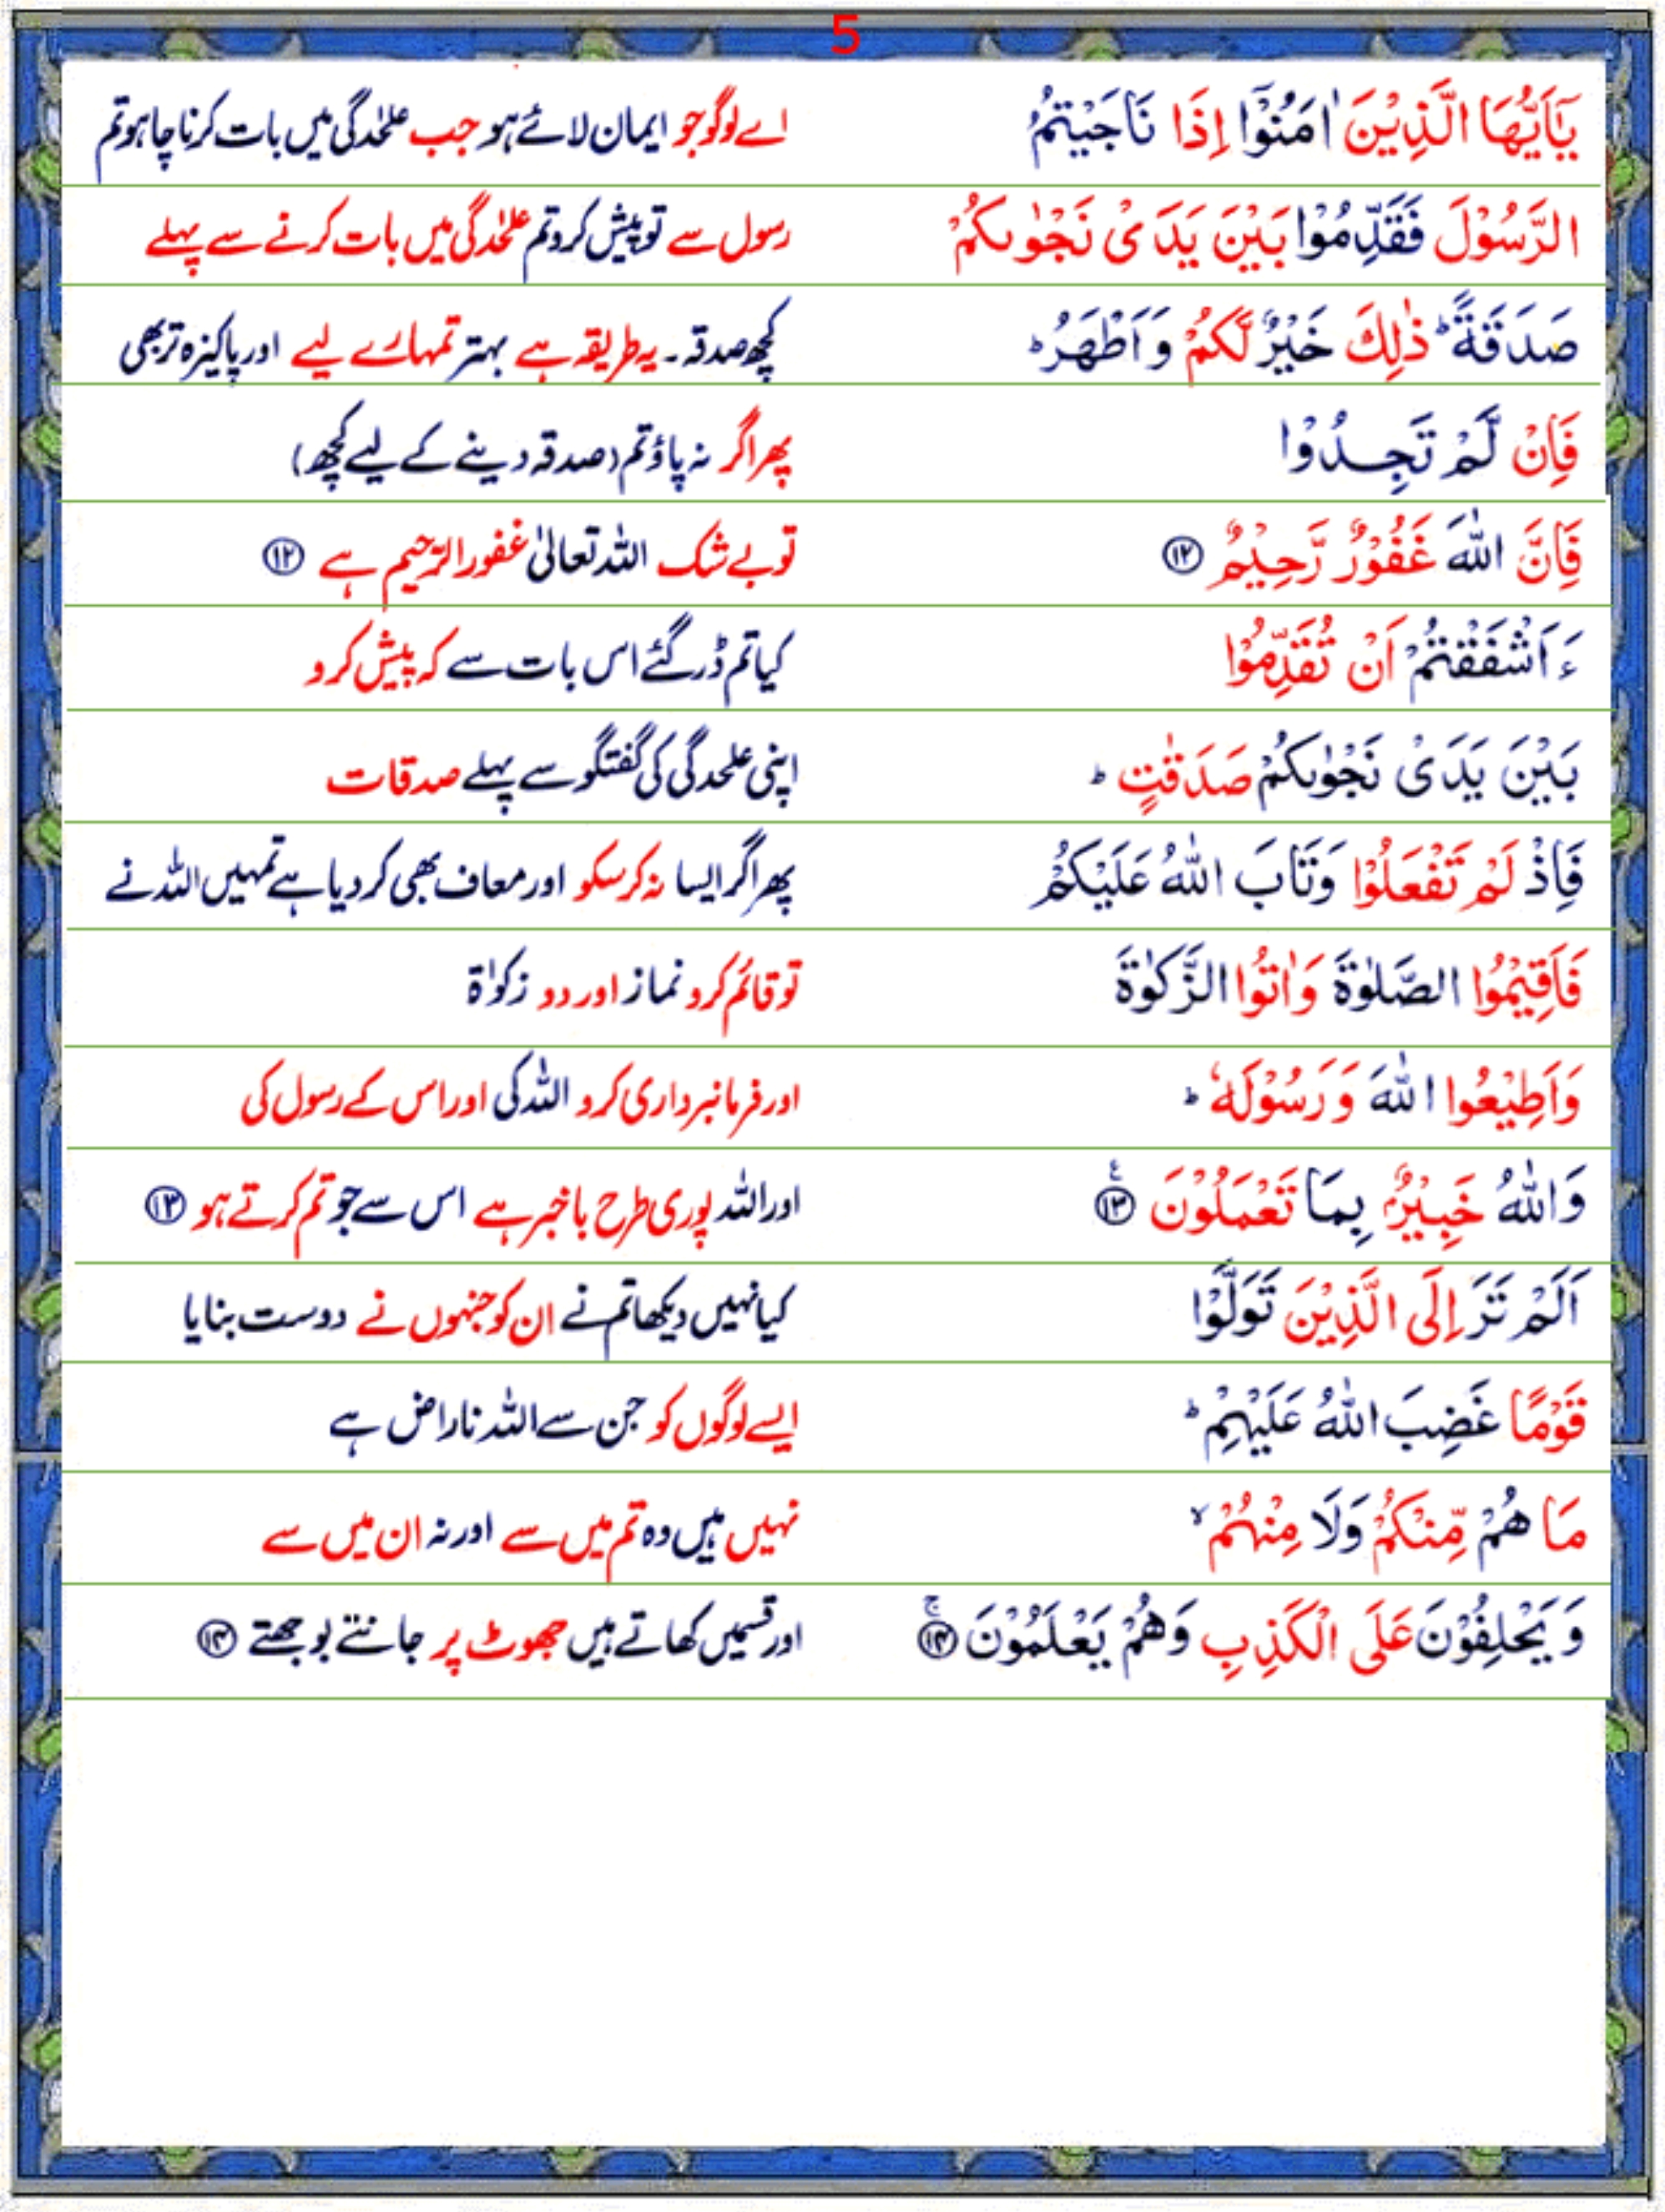 5
يٰۤاَيُّهَا الَّذِيْنَ اٰمَنُوْۤا اِذَا نَاجَيْتُمُ اے لوگو جو ایمان لائے ہو جب علٰحدگی میں بات کرنا چاہو تم
الرَّسُوْلَ فَقَدِّمُوْا بَيْنَ يَدَىْ نَجْوٰىكُمْ رسول سے تو پیش کرو تم علٰحدگی میں بات کرنے سے پہلے
صَدَقَةً ؕ ذٰلِكَ خَيْرٌ لَّكُمْ وَاَطْهَرُ ؕ کچھ صدقہ۔ یہ طریقہ ہے بہتر تمہارے لیے اور پاکیزہ تر بھی
فَاِنْ لَّمْ تَجِدُوْا پھر اگر نہ پاؤ تم (صدقہ دینے کے لیے کچھ)
فَاِنَّ اللّٰهَ غَفُوْرٌ رَّحِيْمٌ ⁠﴿۱۲﴾ تو بے شک اللہ تعالیٰ غفور الرّحیم ہے ﴿۱۲﴾
ءَاَشْفَقْتُمْ اَنْ تُقَدِّمُوْا کیا تم ڈر گئے اس بات سے کہ پیش کرو
بَيْنَ يَدَىْ نَجْوٰىكُمْ صَدَقٰتٍ ؕ اپنی علٰحدگی کی گفتگو سے پہلے صدقات
فَاِذْ لَمْ تَفْعَلُوْا وَتَابَ اللّٰهُ عَلَيْكُمْ پھر اگر ایسا نہ کر سکو اور معاف بھی کر دیا ہے تمہیں اللہ نے
فَاَقِيْمُوا الصَّلٰوةَ وَاٰتُوا الزَّكٰوةَ تو قائم کرو نماز اور دو زکوٰۃ
وَاَطِيْعُوا اللّٰهَ وَرَسُوْلَهٗ ؕ اور فرمانبرداری کرو اللہ کی اور اس کے رسول کی
وَاللّٰهُ خَبِيْرٌۢ بِمَا تَعْمَلُوْنَ ﴿۱۳﴾ ع اور اللہ پوری طرح باخبر ہے اس سے جو تم کرتے ہو ﴿۱۳﴾
اَلَمْ تَرَ اِلَى الَّذِيْنَ تَوَلَّوْا کیا نہیں دیکھا تم نے ان کو جنہوں نے دوست بنایا
قَوْمًا غَضِبَ اللّٰهُ عَلَيْهِمْ ؕ ایسے لوگوں کو جن سے اللہ ناراض ہے
مَا هُمْ مِّنْكُمْ وَلَا مِنْهُمْ ۙ نہیں ہیں وہ تم میں سے اور نہ ان میں سے
وَيَحْلِفُوْنَ عَلَى الْكَذِبِ وَهُمْ يَعْلَمُوْنَ ﴿۱۴﴾ ج اور قسمیں کھاتے ہیں جھوٹ پر جانتے بوجھتے ﴿۱۴﴾